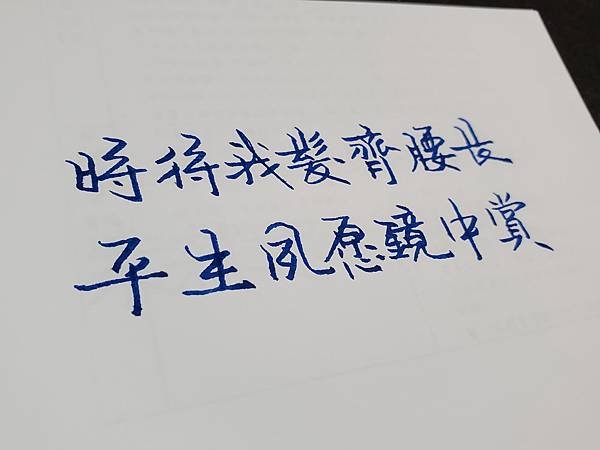 時待我髮齊腰長
平生夙愿鏡中賞